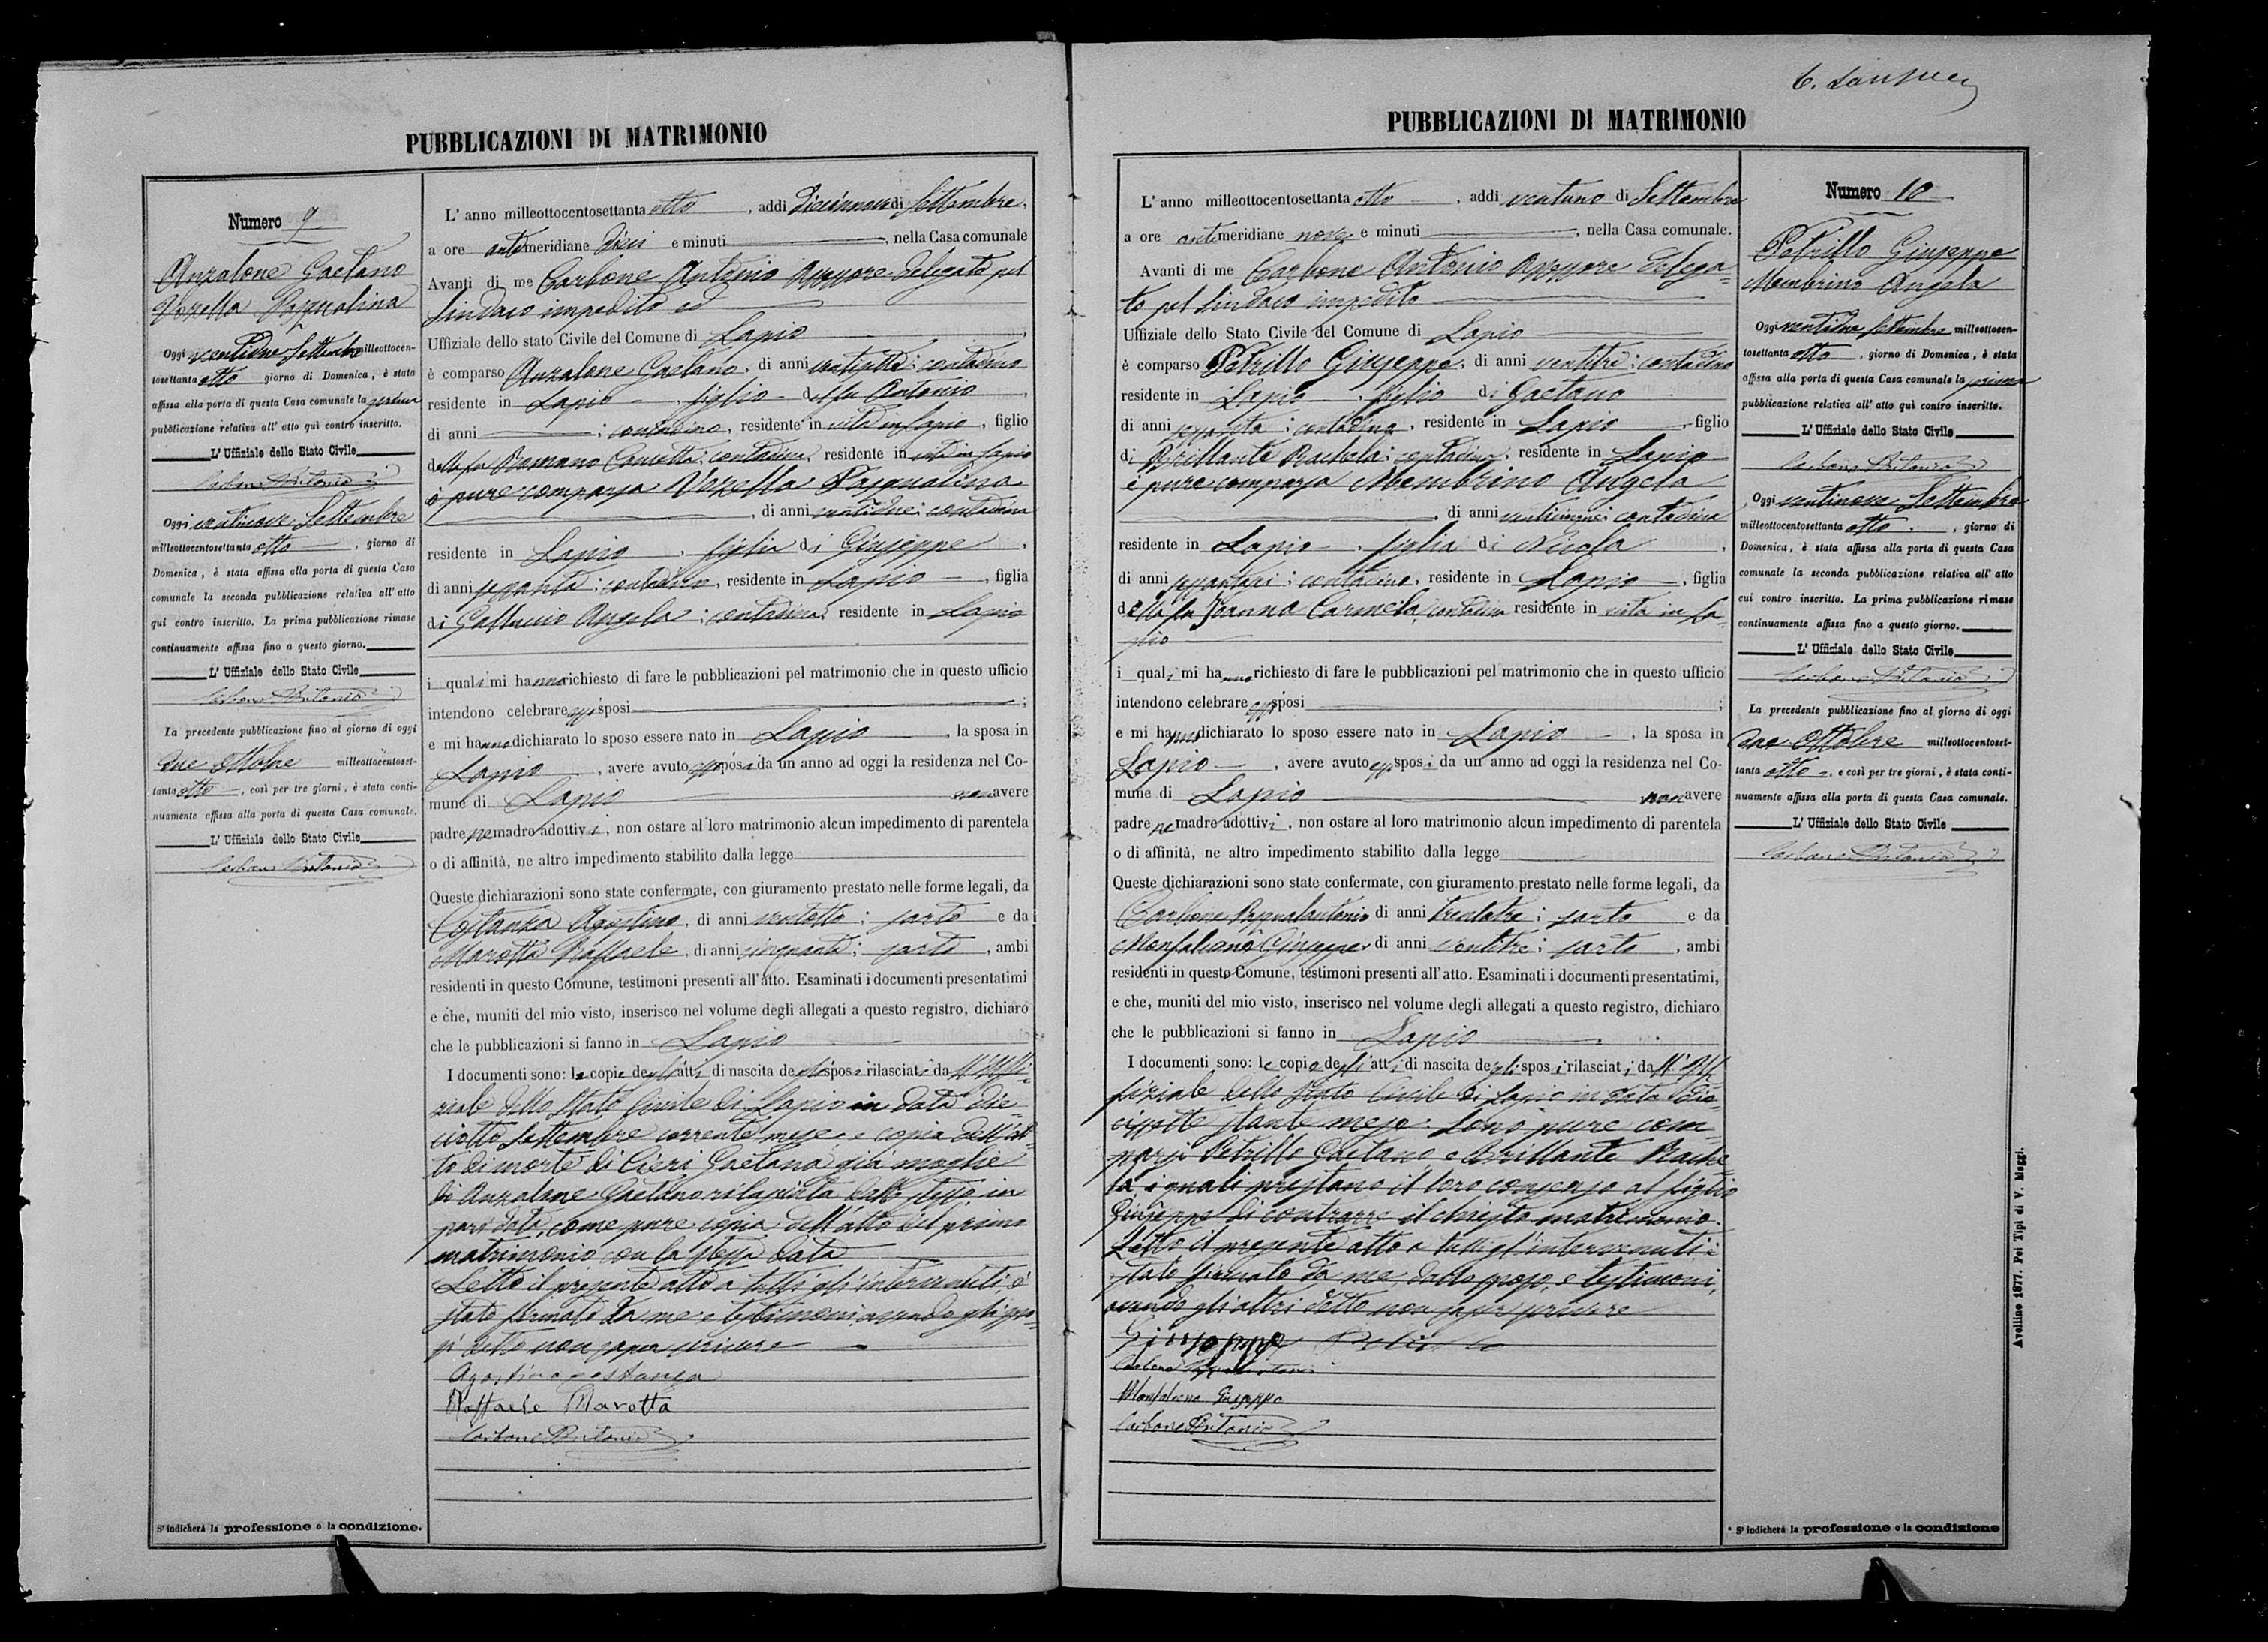 PUBBLICAZIONI DI MATRIMONIO
Numero 9
Anzalone Gaetano
Vozella Pasqualina
Oggi ventidue Settembre milleottocen-
tosettanta otto giorno di Domenica, è stata
affissa alla porta di questa Casa comunale la prima
pubblicazione relativa all' atto quì contro inscritto.
L' Uffiziale dello Stato Civile
Carbone Antonio
Oggi ventinove Settembre
milleottocentosettanta otto, giorno di
Domenica, è stata affissa alla porta di questa Casa
comunale la seconda pubblicazione relativa all' atto
qui contro inscritto. La prima pubblicazione rimase
continuamente affissa fino a questo giorno.
L' Uffiziale dello Stato Civile
Carbone Antonio
La precedente pubblicazione fino al giorno di oggi
due Ottobre milleottocentoset-
tanta otto, così per tre giorni, è stata conti-
nuamente affissa alla porta di questa Casa comunale.
L' Uffiziale dello Stato Civile
Carbone Antonio
Sᵢ indicherà la professione o la condizione.
L' anno milleottocentosettanta otto, addi diciannove di Settembre,
a ore antimeridiane dieci e minuti , nella Casa comunale
Avanti di me Carbone Antonio Assessore delegato pel
Sindaco impedito ed
Uffiziale dello stato Civile del Comune di Lapio
è comparso Anzalone Gaetano, di anni contadino
residente in Lapio, figlio del fu Antonio
di anni ; contadino, residente in vita in Lapio, figlio
della fu Romano contadina, residente in vita in Lapio
è pure comparsa Vozella Pasqualina
, di anni ventidue; contadina
residente in Lapio, figlia di Giuseppe,
di anni sessanta; contadino, residente in Lapio, figlia
di Gallucio Angela; contadina, residente in Lapio
i quali mi hanno richiesto di fare le pubblicazioni pel matrimonio che in questo ufficio
intendono celebrare essi sposi ;
e mi hanno dichiarato lo sposo essere nato in Lapio, la sposa in
Lapio, avere avuto essi sposi da un anno ad oggi la residenza nel Co-
mune di Lapio non avere
padre ne madre adottivi, non ostare al loro matrimonio alcun impedimento di parentela
o di affinità, ne altro impedimento stabilito dalla legge
Queste dichiarazioni sono state confermate, con giuramento prestato nelle forme legali, da
Costanza Agostino, di anni ventotto; sarto e da
Marotta Raffaele, di anni cinquanta; sarto, ambi
residenti in questo Comune, testimoni presenti all'atto. Esaminati i documenti presentatimi
e che, muniti del mio visto, inserisco nel volume degli allegati a questo registro, dichiaro
che le pubblicazioni si fanno in Lapio
I documenti sono: le copie degli atti di nascita degli sposi rilasciati da ll' Uffi-
ziale dello Stato Civile di Lapio in data die-
ciotto Settembre corrente mese e copia dell'at-
to di morte di Cieri Gaetana già moglie
di Anzalone Gaetano rilasciata dallo stesso in
pari data, come pure copia dell'atto del primo
matrimonio con la stessa data
Letto il presente atto a tutti gli intervenuti, è
stato firmato da me e testimoni avendo gli spo-
si detto non saper scrivere
Agostino costanza
Raffaele Marotta
Carbone Antonio
PUBBLICAZIONI DI MATRIMONIO
L' anno milleottocentosettanta otto, addi ventuno di Settembre
a ore antimeridiane nove e minuti , nella Casa comunale.
Avanti di me Carbone Antonio Assessore delega-
to pel Sindaco impedito
Uffiziale dello Stato Civile del Comune di Lapio
è comparso Petrillo Giuseppe, di anni ventitre; contadino
residente in Lapio, figlio di Gaetano
di anni sessanta; contadino, residente in Lapio, figlio
di Brillante Rachela; contadina, residente in Lapio
è pure comparsa Membrino Angela
, di anni venticinque; contadina
residente in Lapio, figlia di Nicola,
di anni ; contadino, residente in Lapio, figlia
della fu Joanna Carmela, contadina residente in vita in La-
pio
i quali mi hanno richiesto di fare le pubblicazioni pel matrimonio che in questo ufficio
intendono celebrare essi sposi ;
e mi hanno dichiarato lo sposo essere nato in Lapio, la sposa in
Lapio, avere avuto essi sposi da un anno ad oggi la residenza nel Co-
mune di Lapio non avere
padre ne madre adottivi, non ostare al loro matrimonio alcun impedimento di parentela
o di affinità, ne altro impedimento stabilito dalla legge
Queste dichiarazioni sono state confermate, con giuramento prestato nelle forme legali, da
Carbone Pasqualantonio di anni trentatre; sarto e da
Monfalcone Giuseppe di anni ventitre; sarto, ambi
residenti in questo Comune, testimoni presenti all'atto. Esaminati i documenti presentatimi,
e che, muniti del mio visto, inserisco nel volume degli allegati a questo registro, dichiaro
che le pubblicazioni si fanno in Lapio
I documenti sono: le copie degli atti di nascita degli sposi rilasciati da ll' Uf-
fiziale dello Stato Civile di Lapio in data die-
cissette stante mese. Sono pure com-
parsi Petrillo Gaetano e Brillante Rache-
la, i quali prestano il loro consenso al figlio
Giuseppe di contrarre il chiesto matrimonio.
Letto il presente atto a tutti gl'intervenuti è
stato firmato da me, dallo sposo, e testimoni,
avendo gli altri detto non saper scrivere
Giuseppe Petrillo
Carbone Pasqualantonio
Monfalcone Giuseppe
Carbone Antonio
Numero 10
Petrillo Giuseppe
Membrino Angela
Oggi ventidue Settembre milleottocen-
tosettanta otto, giorno di Domenica, è stata
affissa alla porta di questa Casa comunale la prima
pubblicazione relativa all' atto quì contro inscritto.
L' Uffiziale dello Stato Civile
Carbone Antonio
Oggi ventinove Settembre
milleottocentosettanta otto, giorno di
Domenica, è stata affissa alla porta di questa Casa
comunale la seconda pubblicazione relativa all' atto
cui contro inscritto. La prima pubblicazione rimase
continuamente affissa fino a questo giorno.
L' Uffiziale dello Stato Civile
Carbone Antonio
La precedente pubblicazione fino al giorno di oggi
due Ottobre milleottocentoset-
tanta otto, e così per tre giorni, è stata conti-
nuamente affissa alla porta di questa Casa comunale.
L' Uffiziale dello Stato Civile
Carbone Antonio
* Sᵢ indicherà la professione o la condizione
Avellino 1877. Pei Tipi di V. Maggi.